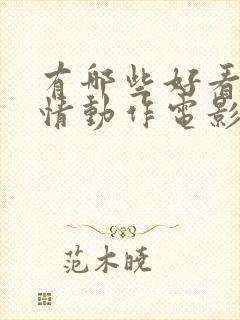 有哪些好看
情动作电影
范木晓